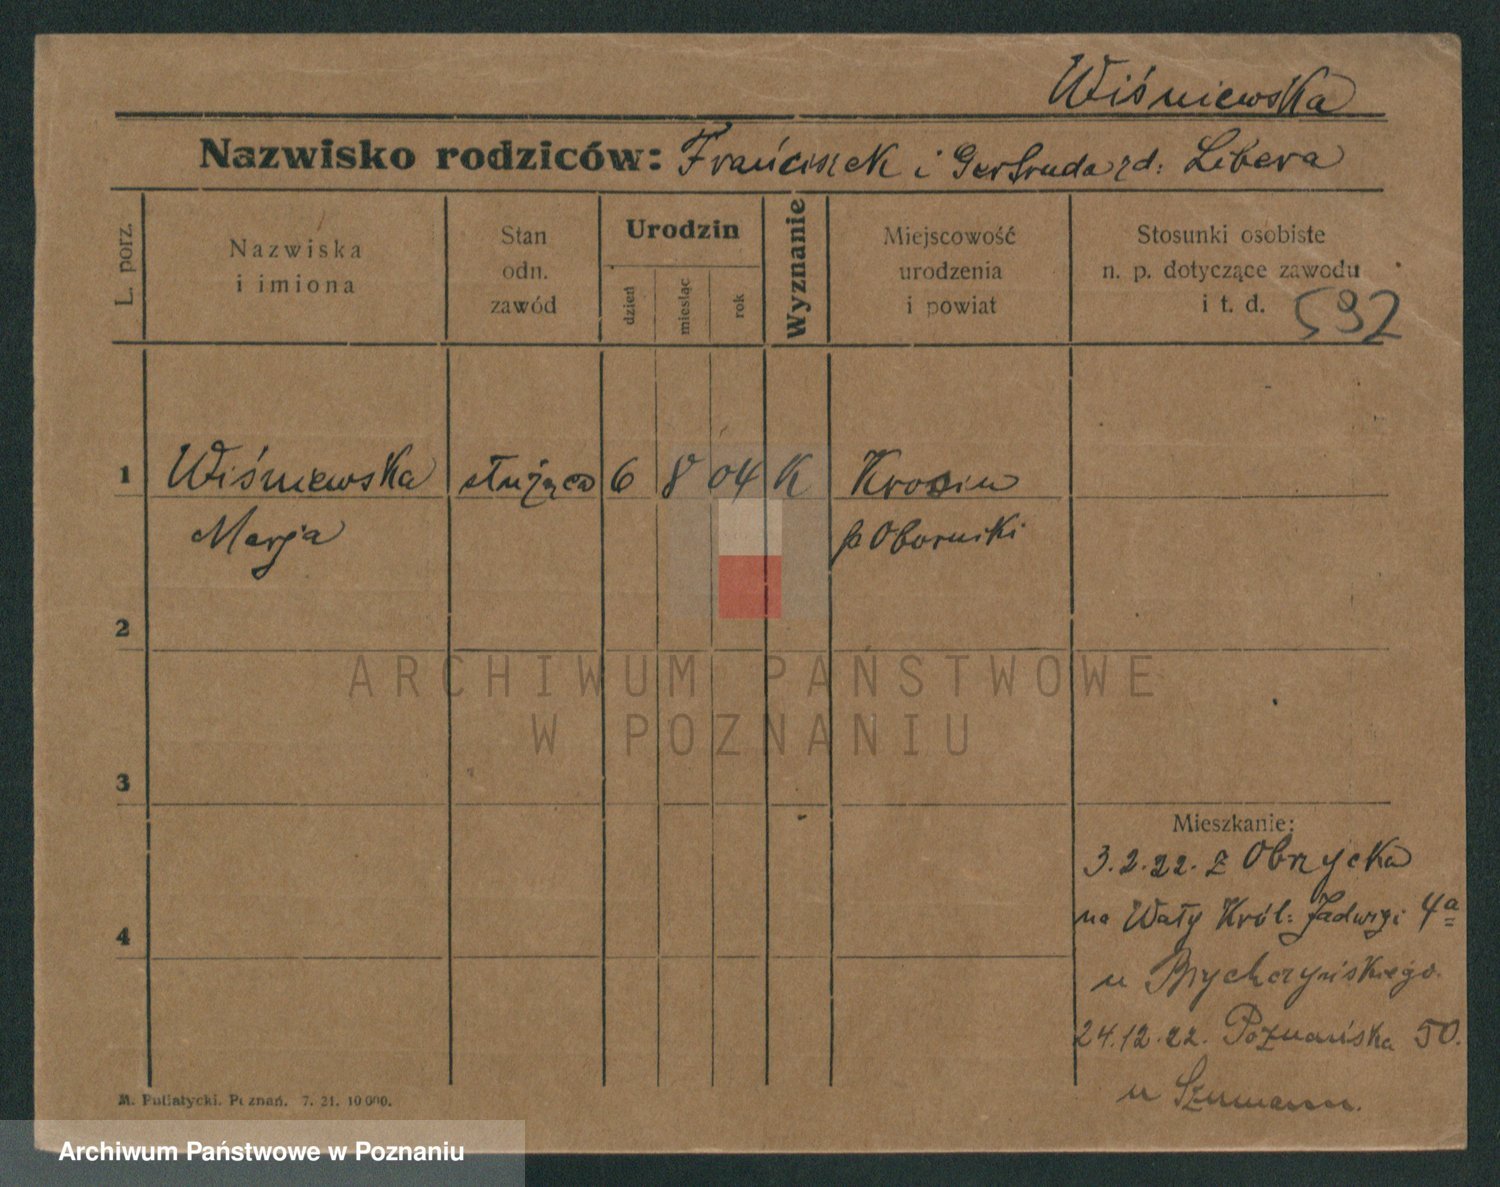 Wiśniewska
Nazwisko rodziców: Franciszek i Gertruda zd: Libera
L. porz.
Nazwiska
i imiona
Stan
odn.
zawód
Urodzin
dzień
miesiąc
rok
Wyznanie
Miejscowość
urodzenia
i powiat
Stosunki osobiste
n. p. dotyczące zawodu
i t. d.
592
1 Wiśniewska służąca 6 8 04 K Krosin
Marja p Oborniki
2
3
4
Mieszkanie:
3.2.22. z Obrzycka
na Wały Król: Jadwigi 4a
u
24.12.22. Poznańska 50.
u Szumann.
M. Putiatycki. Poznań. 7. 21. 10 000.
ARCHIWUM PAŃSTWOWE
W POZNANIU
Archiwum Państwowe w Poznaniu